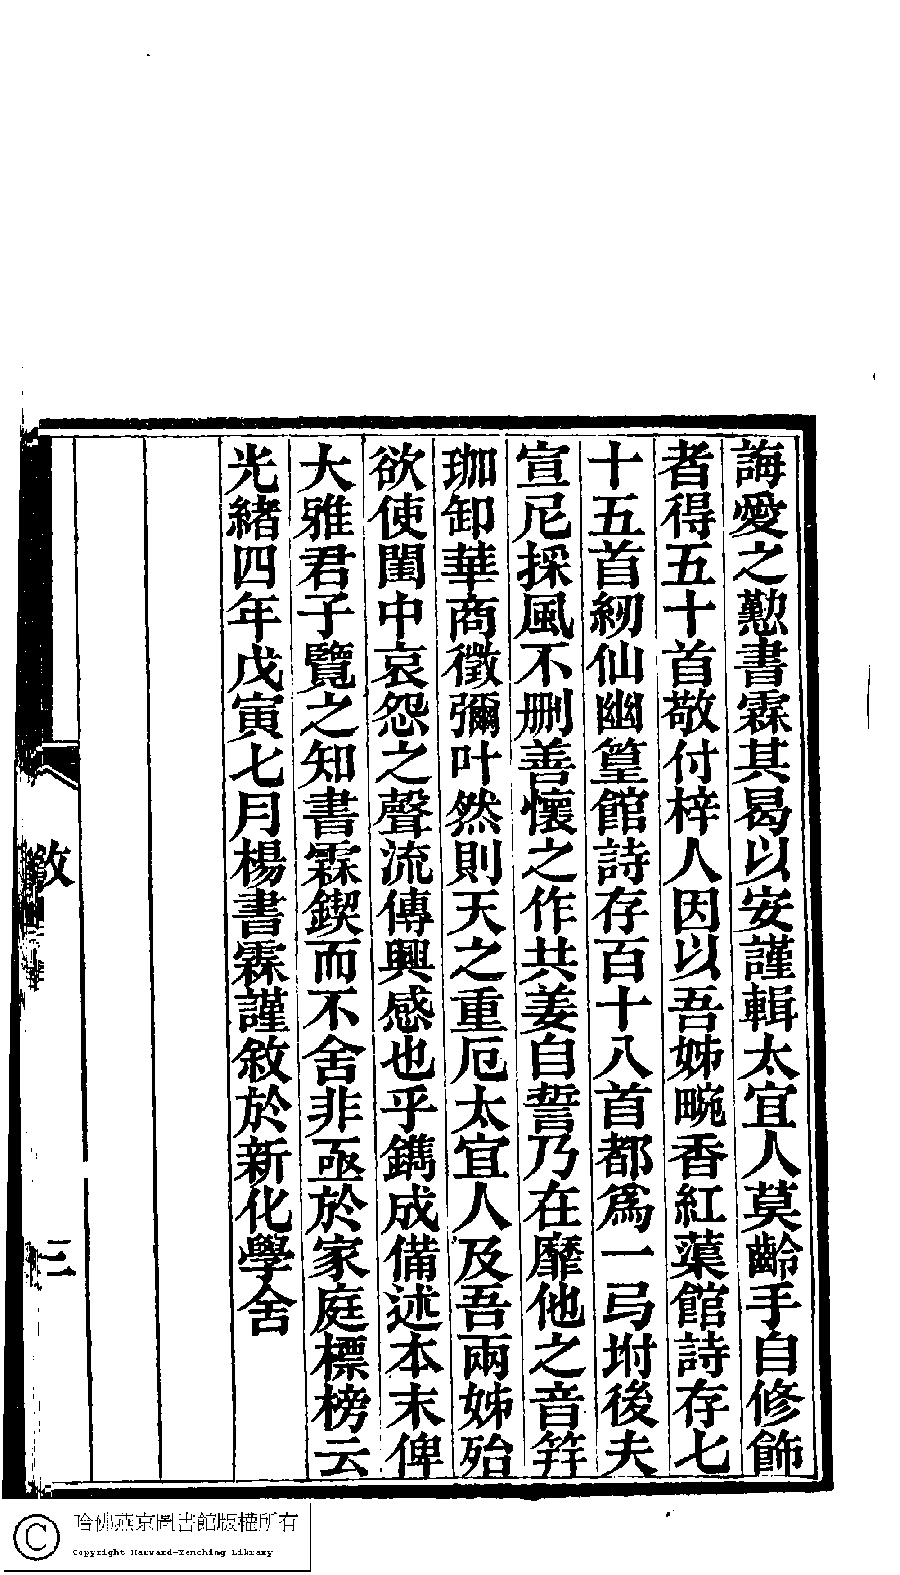 誨愛之懃書霖其曷以安謹輯太宜人莫齡手自修飾
者得五十首敬付梓人因以吾姊畹香紅蕖館詩存七
十五首紉仙幽篁館詩存百十八首都爲一弓坿後夫
宣尼採風不刪善懷之作共姜自誓乃在靡他之音筓
珈卸華商徵彌叶然則天之重厄太宜人及吾兩姊殆
欲使閨中哀怨之聲流傳興感也乎鐫成備述本末俾
大雅君子覽之知書霖鍥而不舍非亟於家庭標榜云
光緒四年戊寅七月楊書霖謹敘於新化學舍
敘
三
哈佛燕京圖書館版權所有
Copyright Harvard-Yenching Library